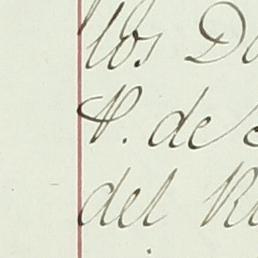 los D
P. de
del R